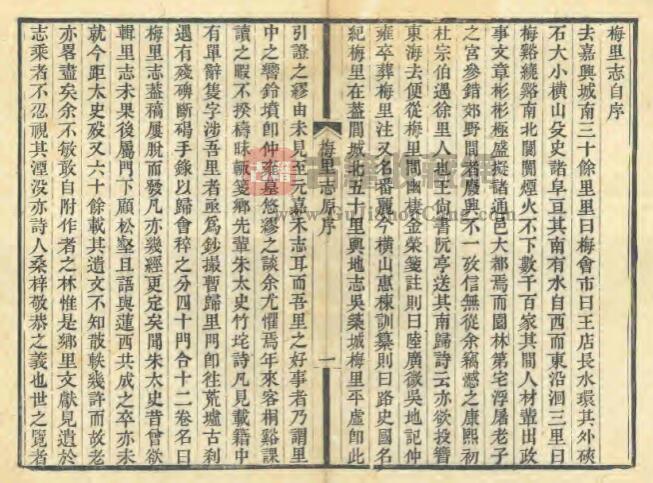 梅里志自序
去嘉興城南三十餘里里曰梅會市曰王店長水環其外硤
石大小橫山殳史諸阜亘其南有水自西而東沿洄三里曰
梅谿繞谿南北闤闠煙火不下數千百家其間人材輩出政
事文章彬彬極盛擬諸通邑大都焉而園林第宅浮屠老子
之宮參錯郊野間者廢興不一攷信無從余竊憾之康熙初
杜宗伯遇徐里人也王尚書阮亭送其南歸詩云亦欲投簪
東海去便從梅里問幽棲金榮箋註則曰陸廣微吳地記仲
雍卒葬梅里注又名番麗今橫山惠棟訓纂則曰路史國名
紀梅里在葢閭城北五十里輿地志吳築城梅里平虛卽此
梅里志原序
一
引證之繆由未見至元嘉禾志耳而吾里之好事者乃謂里
中之響鈴墳卽仲雍墓悠繆之談余尤懼焉年來客桐谿課
讀之暇不揆檮昧輒箋鄉先輩朱太史竹垞詩凡見載籍中
有單辭隻字涉吾里者亟爲鈔撮暫歸里門卽往荒墟古刹
遇有殘碑斷碣手錄以歸會稡之分四十門合十二卷名曰
梅里志葢稿屢脫而發凡亦幾經更定矣聞朱太史昔曾欲
輯里志未果後屬門下顧松壑且語與蓮西共成之卒亦未
就今距太史歿又六十餘載其遺文不知散軼幾許而故老
亦畧盡矣余不敏敢自附作者之林惟是鄉里文獻見遺於
志乘者不忍視其湮沒亦詩人桑梓敬恭之義也世之覽者